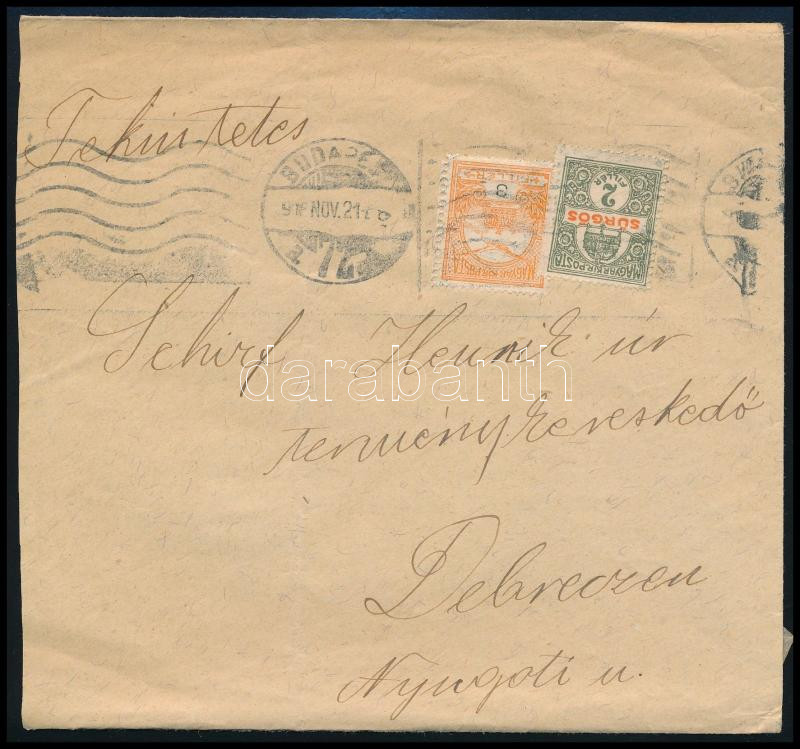 Tekintetes
BUDAPEST
916 NOV. 21
72
3
FILLÉR
MAGYAR KIR. POSTA
2
FILLÉR
SÜRGŐS
MAGYAR KIR. POSTA
Schirf Henrik úr
darabanth
terménykereskedő
Debreczen
Nyugoti u.